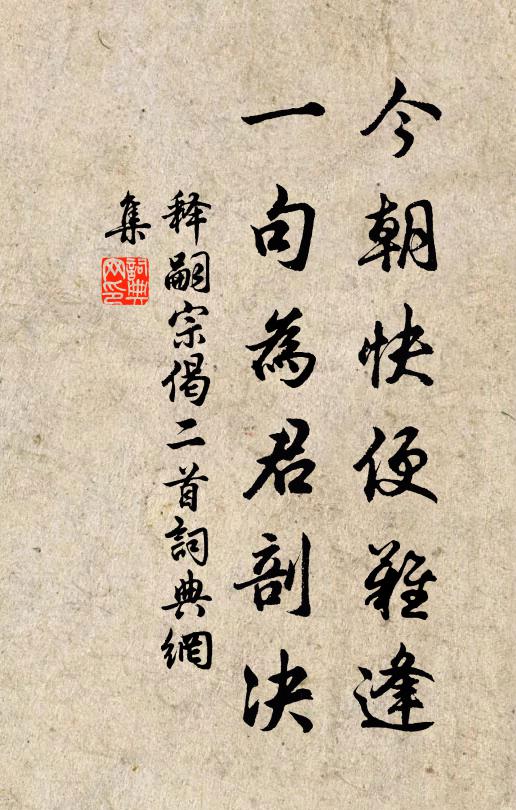 今朝快便難逢
一句為君剖决
释嗣宗偈二首詞典網
集
詞典網印